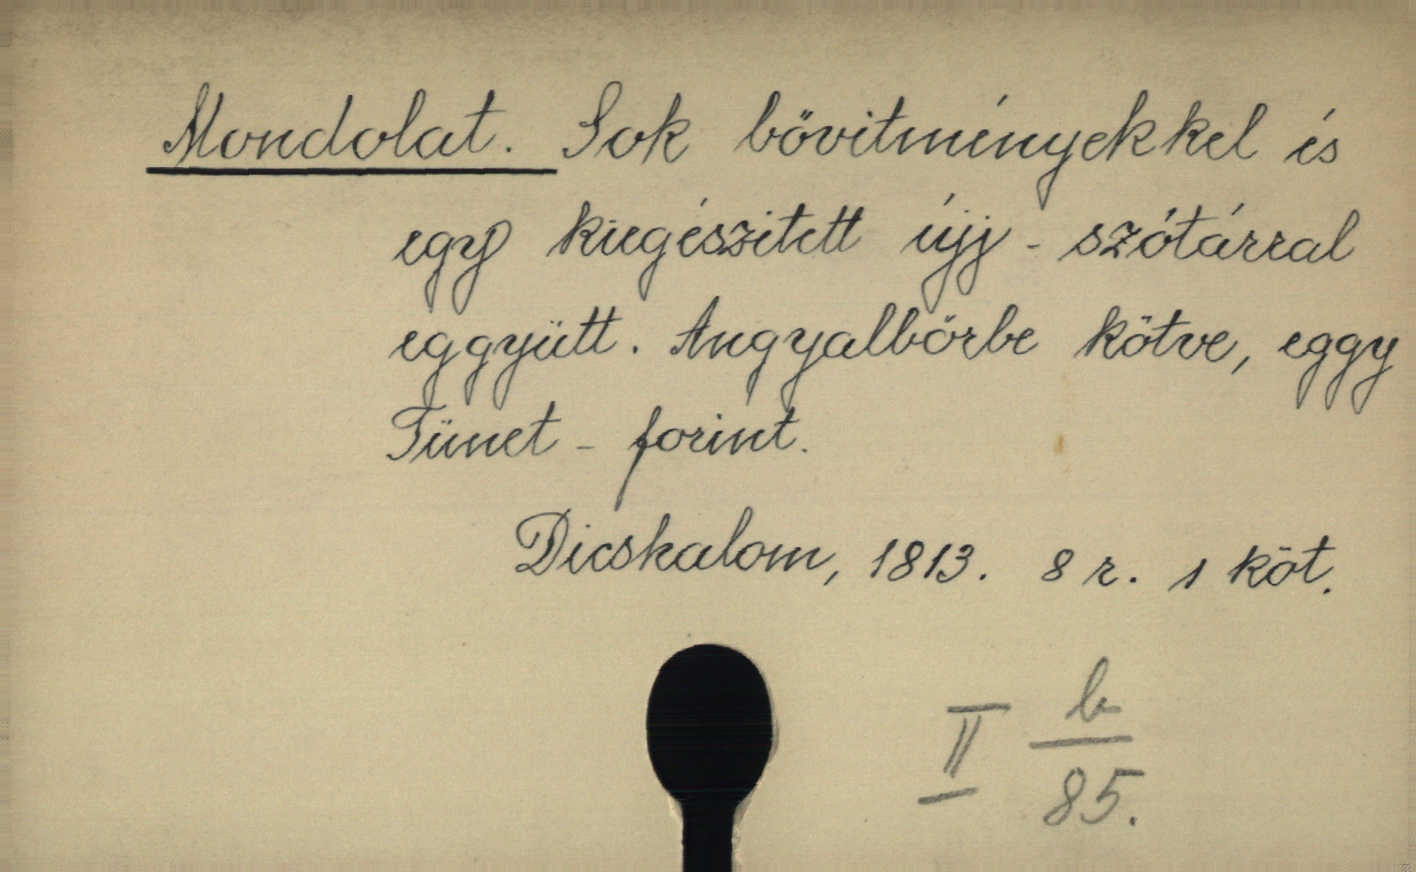 Mondolat. Sok bővitményekkel és
egy kiegészitett újj - szótárral
eggyütt. Angyalbőrbe kötve, eggy
Tünet - forint.
Dicskalom, 1813. 8 r. 1 köt.
II b/85.